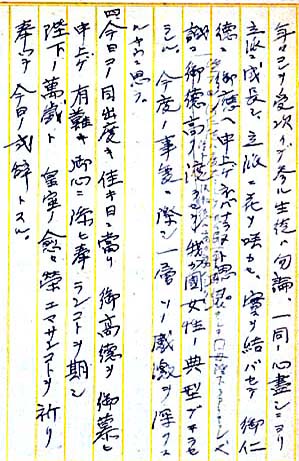 年ゴトニ受次イデ参ル生徒ハ勿論、一同ノ心盡シニヨリ
立派ニ成長シ、立派ニ花ヲ咲カセ、實ヲ結バセテ 御仁
徳ニ御應ヘ申上ゲネバナラヌト思フ。
誠ニ御徳高ク渡ラセ 我ガ國女性ノ典型デアラセ
ラル、今度ノ事蹟ニ際シ一層ソノ感激ヲ深クス
ルヤウ思フ。
四、今日コノ目出度キ佳キ日ニ當リ 御高徳ヲ御慕ヒ
申上ゲ 有難キ御心ニ添ヒ奉ランコトヲ期シ
陛下ノ萬歳ト 皇室ノ愈々榮エマサンコトヲ祈リ
奉ッテ今日ノ式辞トスル。